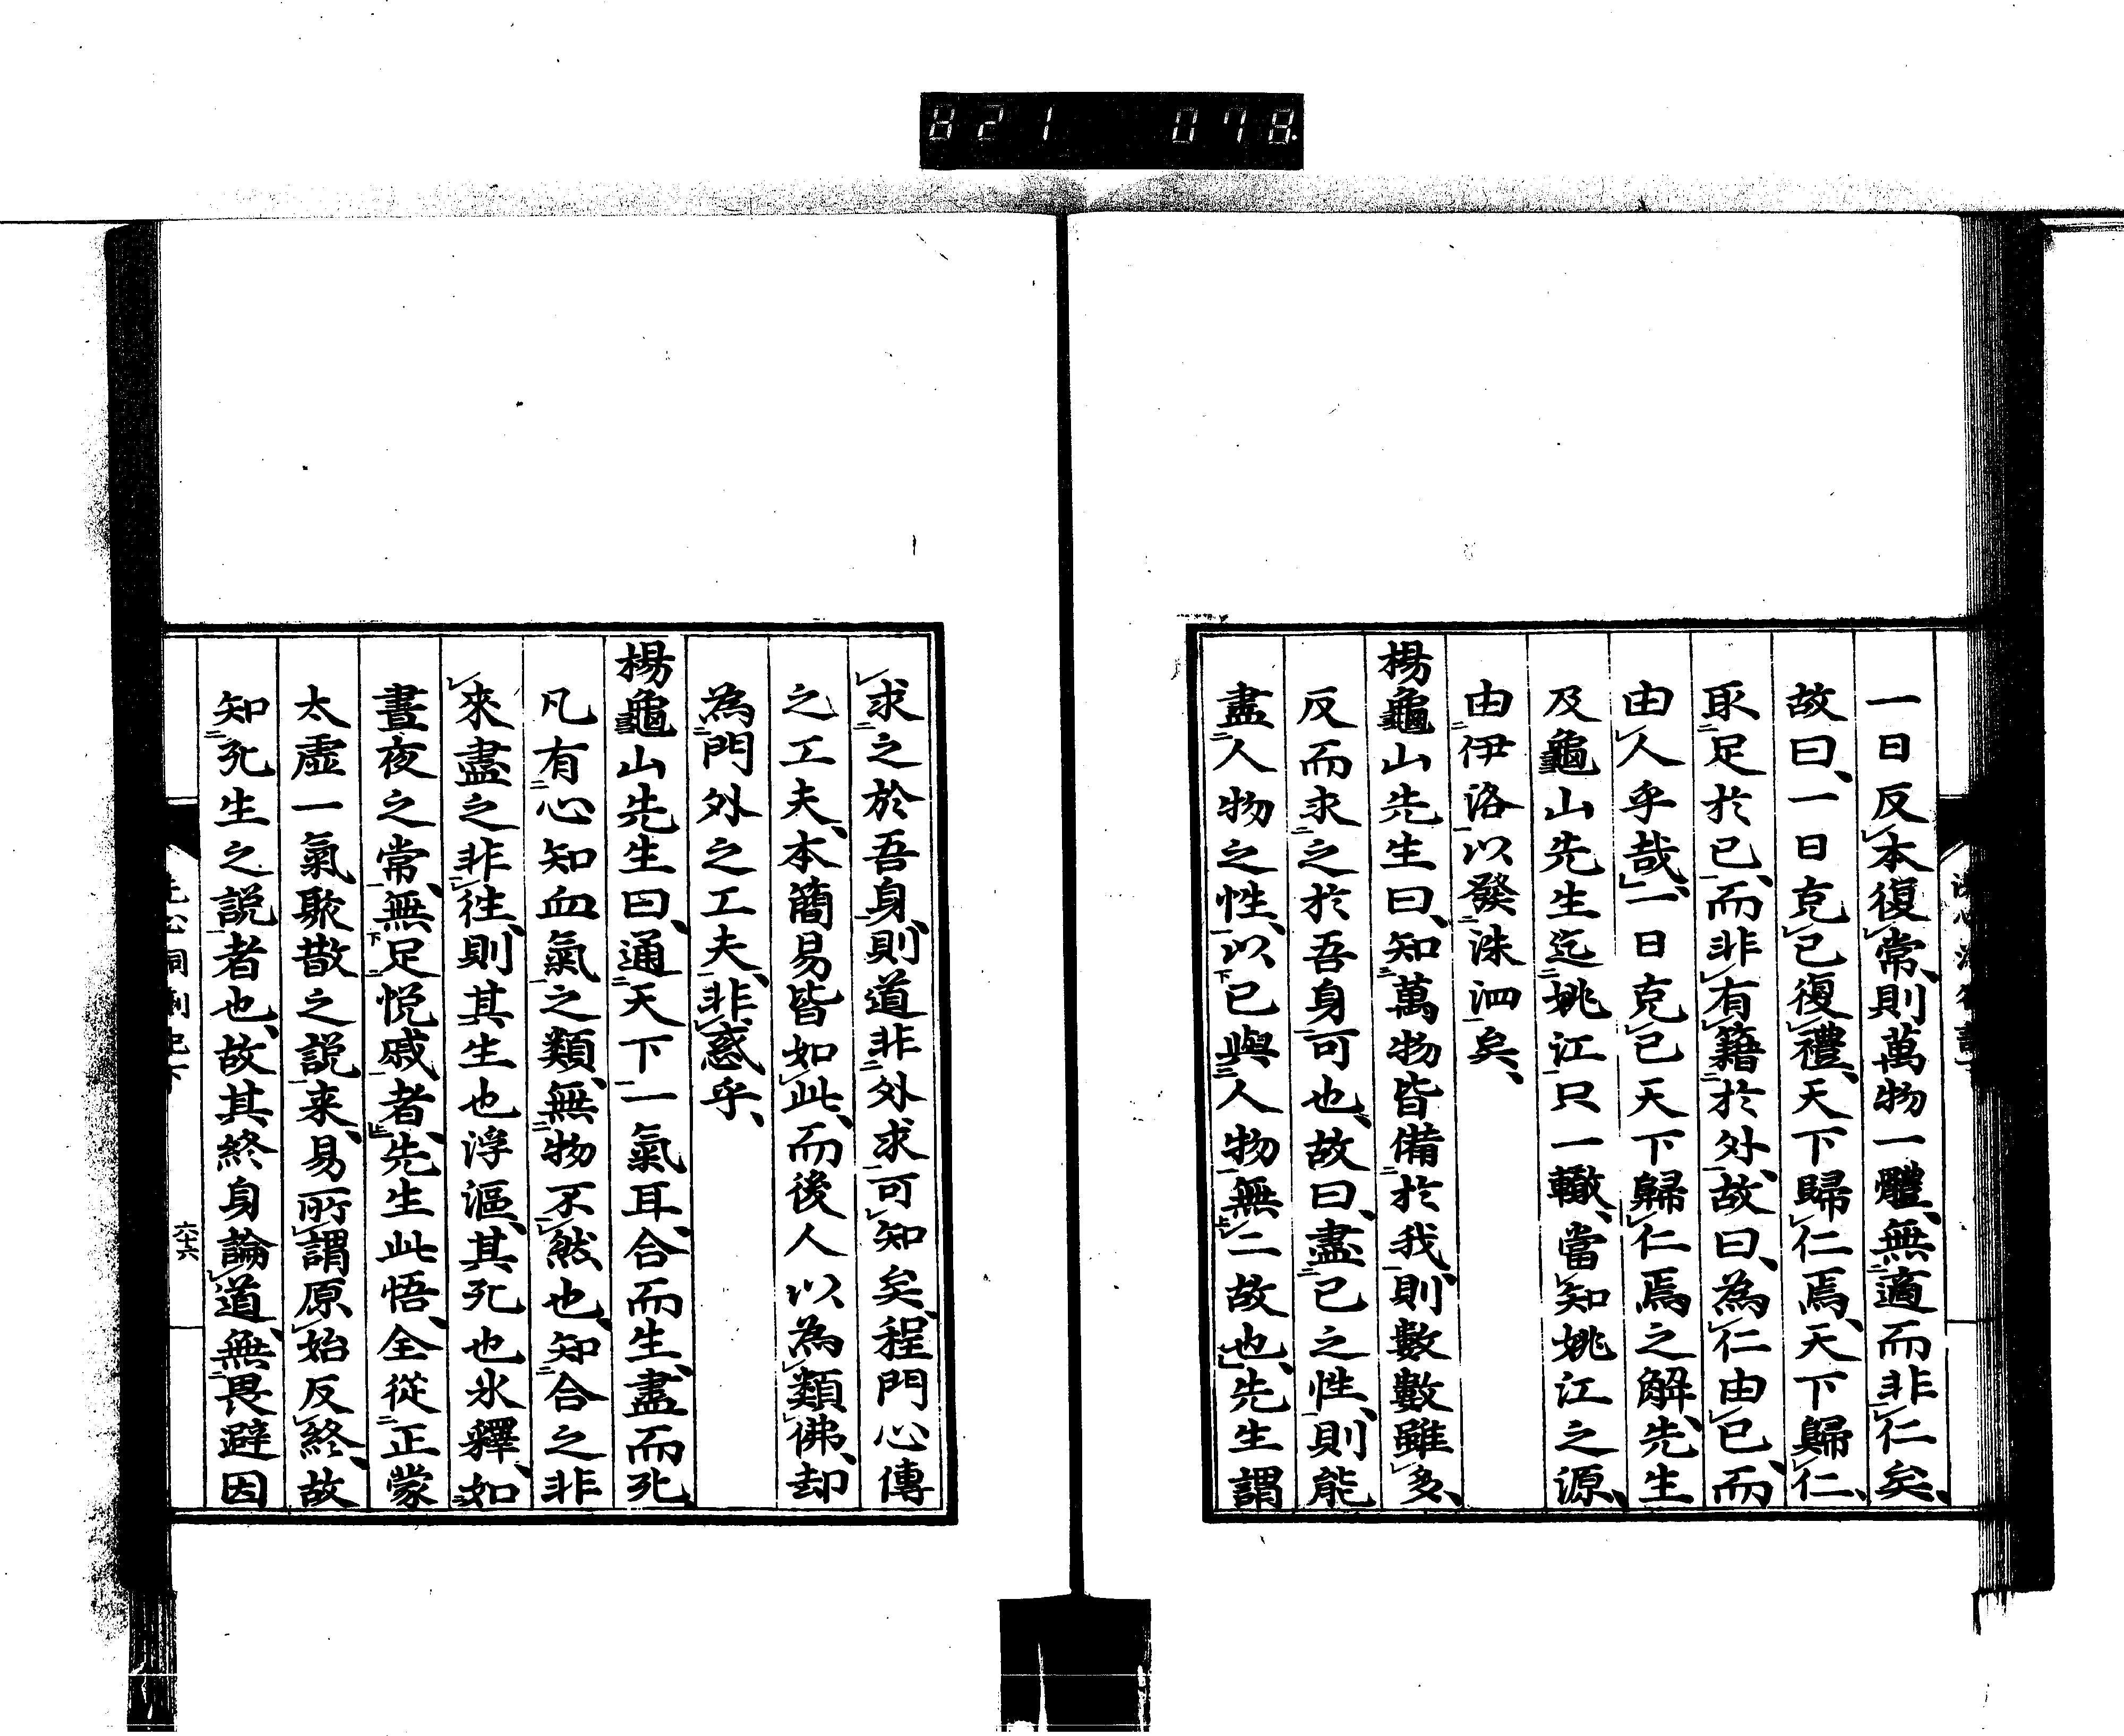 821 078.
一日反本復常、則萬物一體、無適而非仁矣、
故曰、一日克己復禮、天下歸仁焉、天下歸仁、
取足於己、而非有籍於外、故曰、為仁由己、而
由人乎哉、一日克己天下歸仁焉之解、先生
及龜山先生迄姚江只一轍、當知姚江之源、
由伊洛以發洙泗矣、
楊龜山先生曰、知萬物皆備於我、則數數雖多、
反而求之於吾身可也、故曰、盡己之性、則能
盡人物之性、以己與人物無二故也、先生謂
求之於吾身、則道非外求可知矣、程門心傳
之工夫、本簡易皆如此、而後人以為類佛、却
為門外之工夫、非惑乎、
楊龜山先生曰、通天下一氣耳、合而生、盡而死、
凡有心知血氣之類、無物不然也、知合之非
來盡之非往、則其生也浮漚、其死也氷釋、如
晝夜之常、無足悅戚者、先生此悟、全從正蒙
太虛一氣聚散之說来、易所謂原始反終、故
知死生之說者也、故其終身論道、無畏避因
六十六